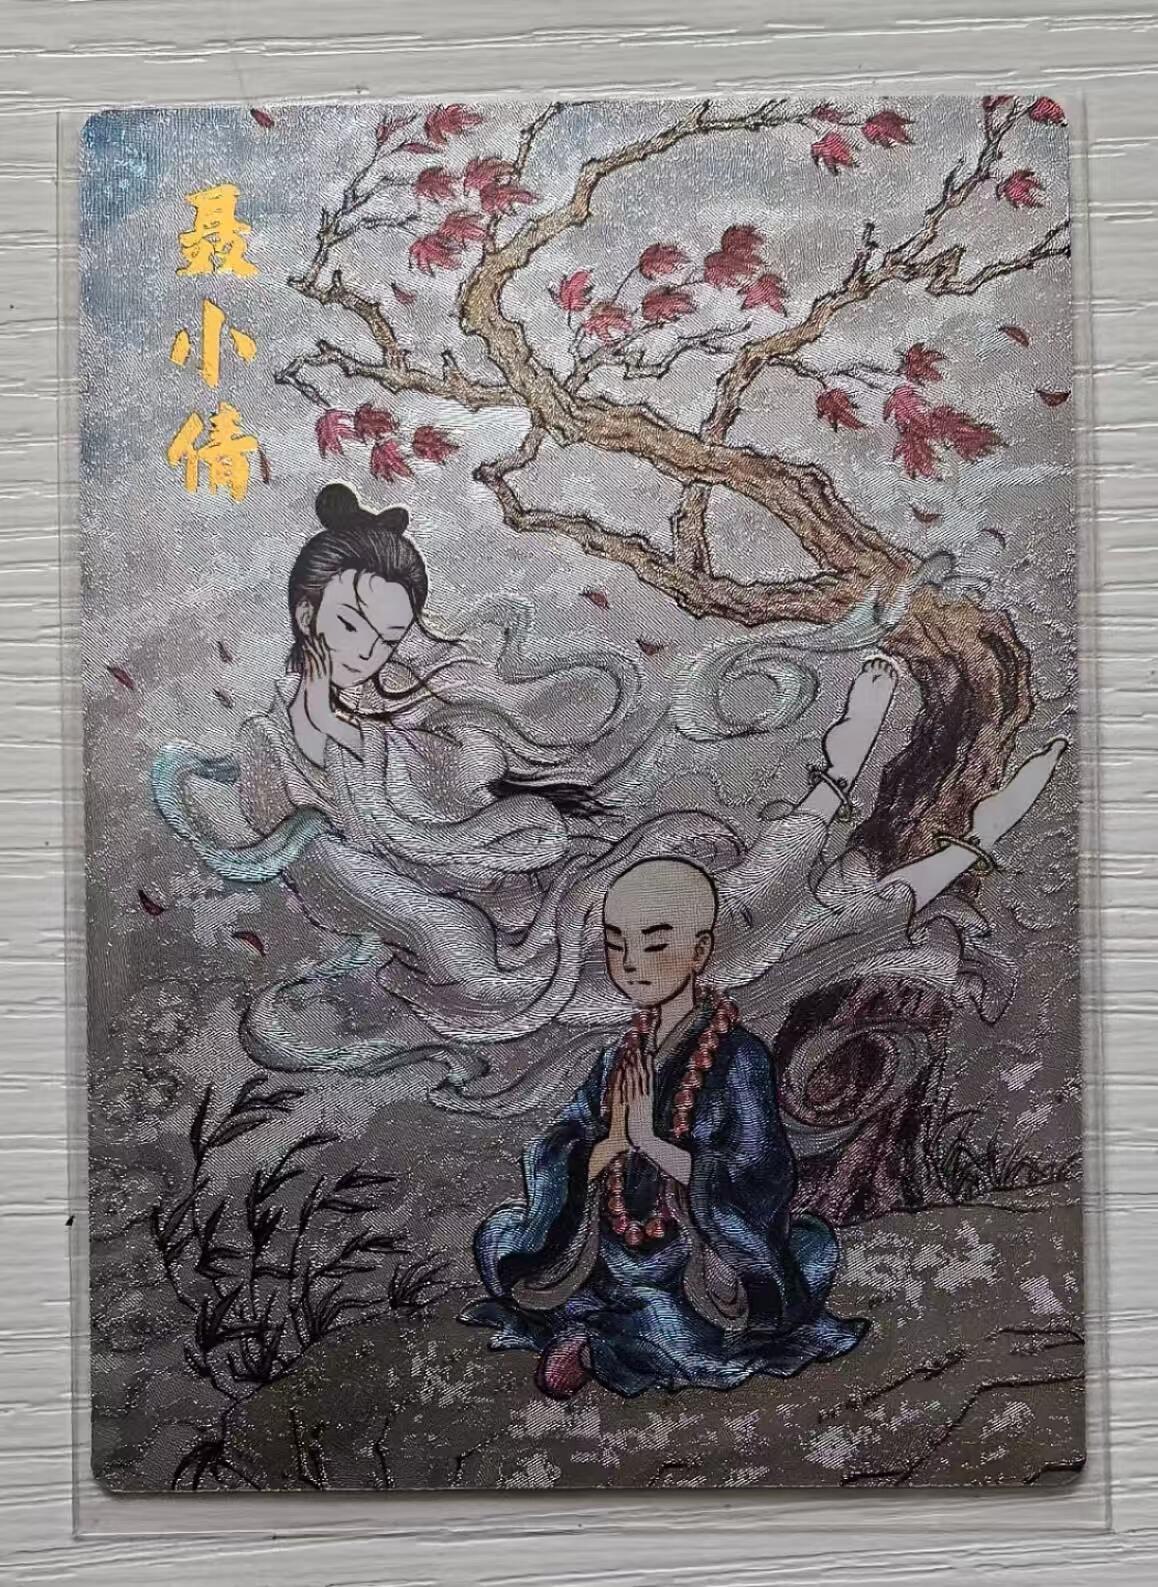 聂小倩